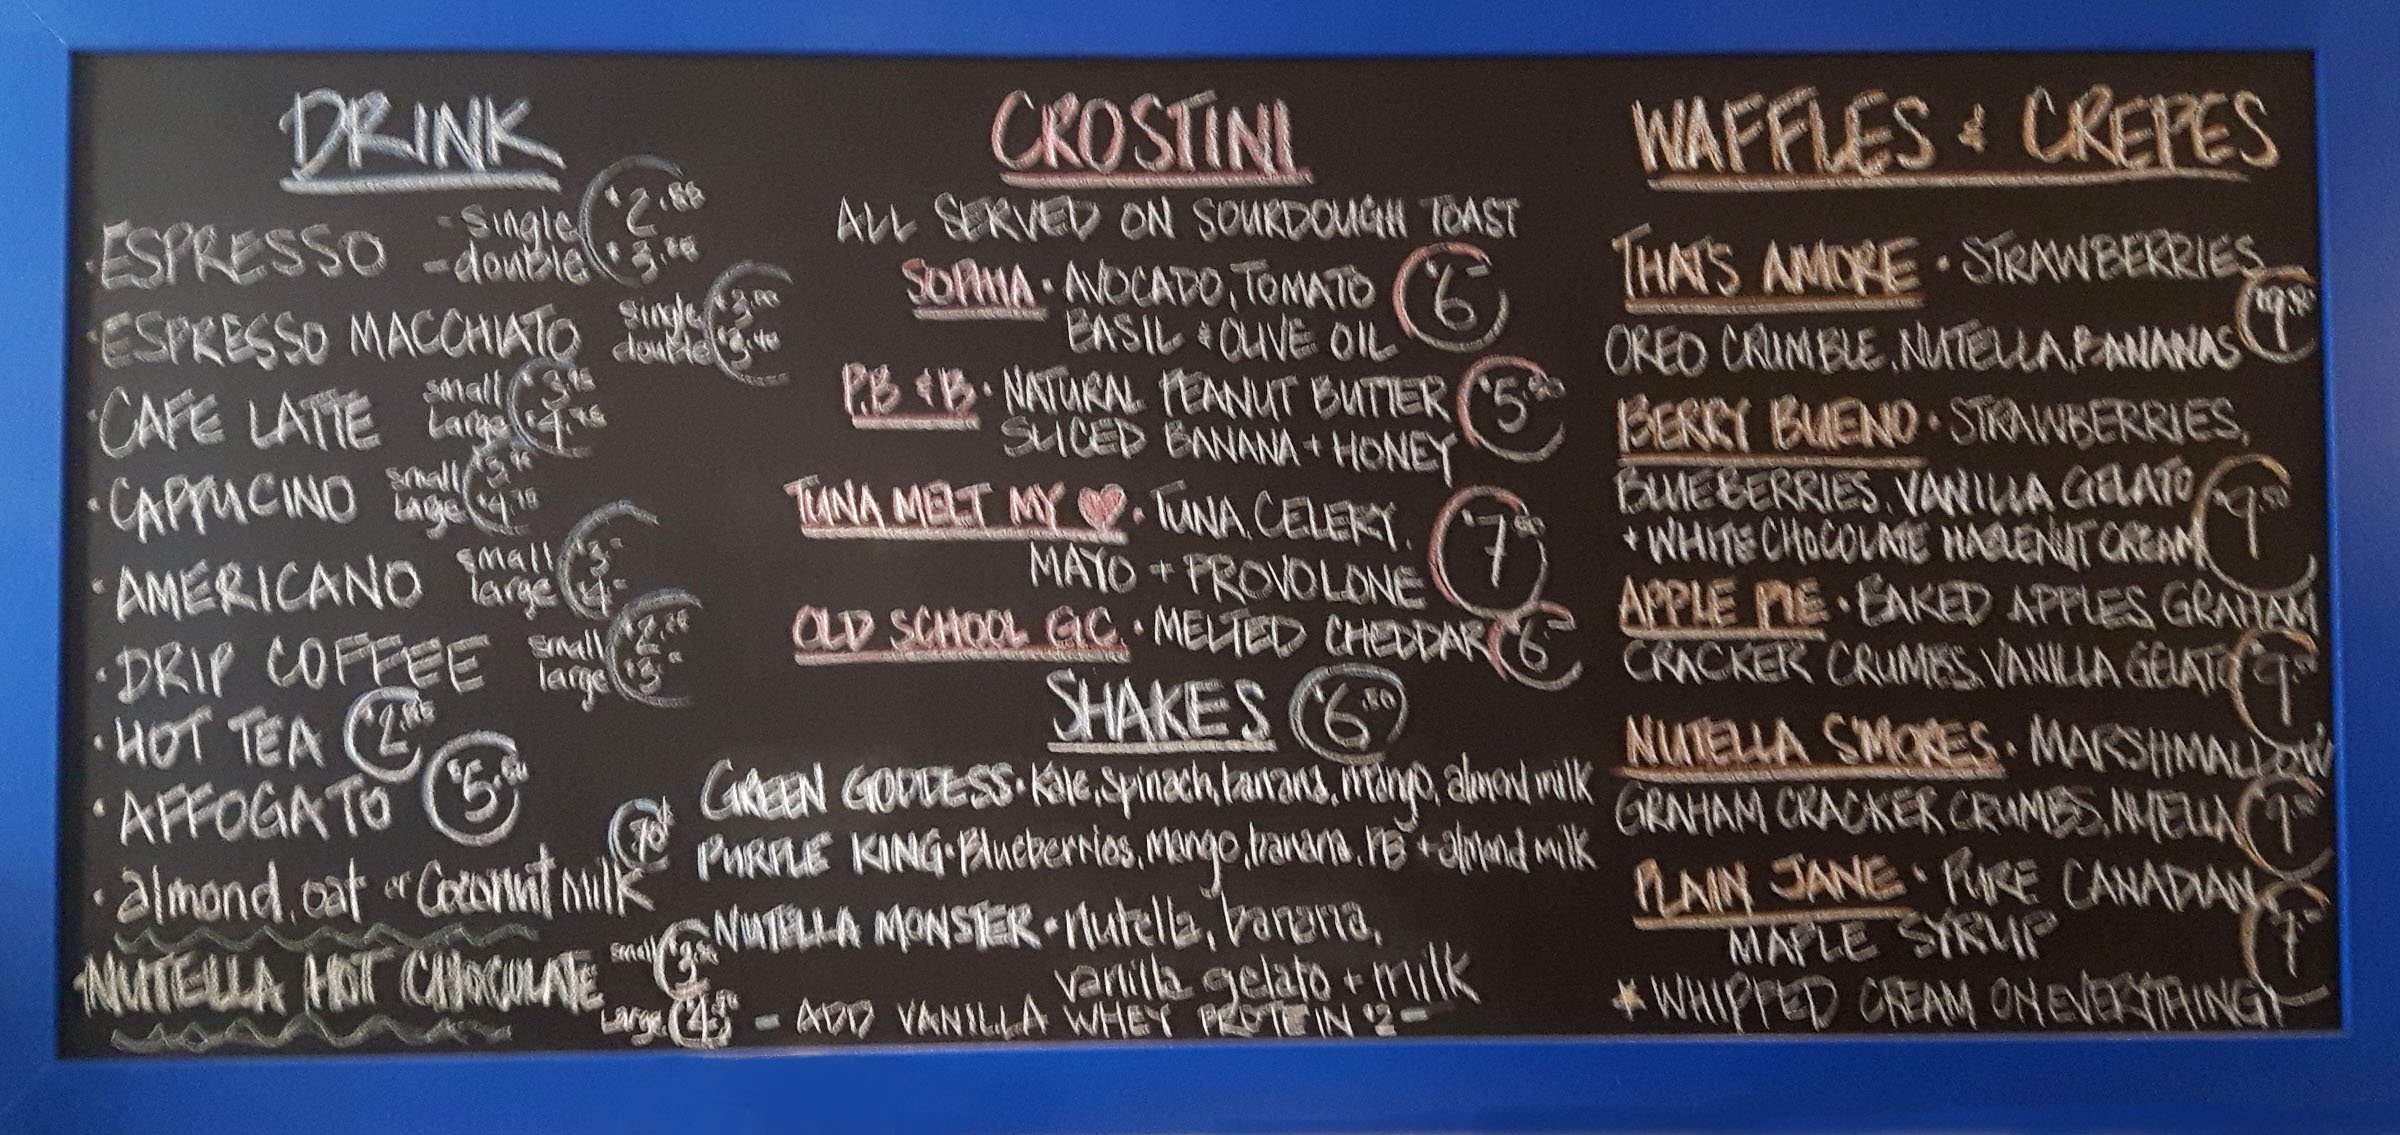 DRINK
· ESPRESSO - single
- double
· ESPRESSO MACCHIATO single
double
· CAFE LATTE small
Large
· CAPPUCINO small
Large
· AMERICANO small $3-
large $4-
· DRIP COFFEE small
large
· HOT TEA
· AFFOGATO
· almond, oat or Coconut milk
NUTELLA HOT CHOCOLATE small
Large
CROSTINI
ALL SERVED ON SOURDOUGH TOAST
SOPHIA · AVOCADO, TOMATO $6-
BASIL & OLIVE OIL
P.B & B · NATURAL PEANUT BUTTER $5.50
SLICED BANANA + HONEY
TUNA MELT MY ♥ · TUNA, CELERY,
MAYO + PROVOLONE
OLD SCHOOL G.C. · MELTED CHEDDAR $6-
SHAKES $6.50
GREEN GODDESS · Kale, spinach, banana, mango, almond milk
PURPLE KING · Blueberries, mango, banana, PB + almond milk
NUTELLA MONSTER · nutella, banana,
vanilla gelato + milk
- ADD VANILLA WHEY PROTEIN $2 -
WAFFLES & CREPES
THATS AMORE · STRAWBERRIES
OREO CRUMBLE, NUTELLA, BANANAS
BERRY BUENO · STRAWBERRIES,
BLUEBERRIES, VANILLA GELATO
+ WHITE CHOCOLATE HAZLENUT CREAM $9.50
APPLE PIE · BAKED APPLES GRAHAM
CRACKER CRUMBS, VANILLA GELATO
NUTELLA S'MORES · MARSHMALLOW
GRAHAM CRACKER CRUMBS, NUTELLA
PLAIN JANE · PURE CANADIAN
MAPLE SYRUP
★ WHIPPED CREAM ON EVERYTHING!